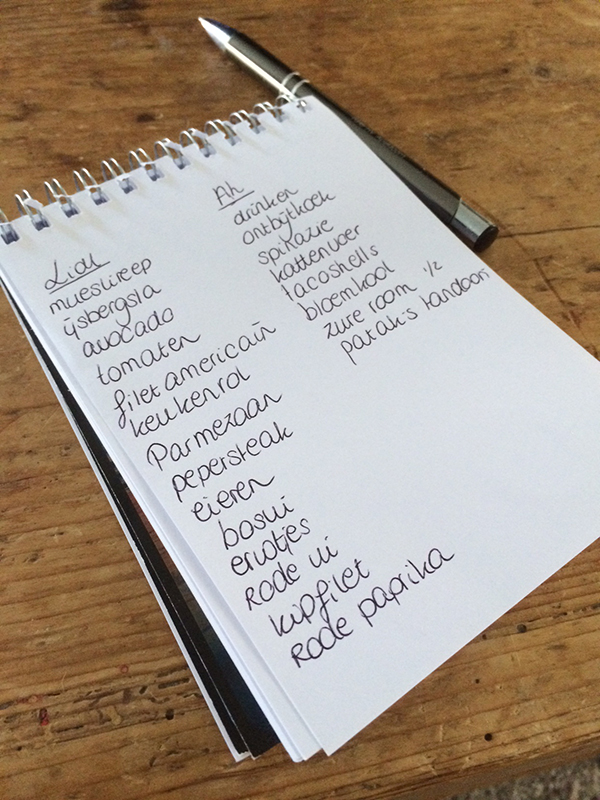 Lidl
mueslireep
ijsbergsla
avocado
tomaten
filet americain
keukenrol
Parmezaan
pepersteak
eieren
bosui
erwtjes
Rode ui
kipfilet
Rode paprika
Ah
drinken
ontbijtkoek
spinazie
kattenvoer
tacoshells
bloemkool
zure room 1/2
patak's tandoori